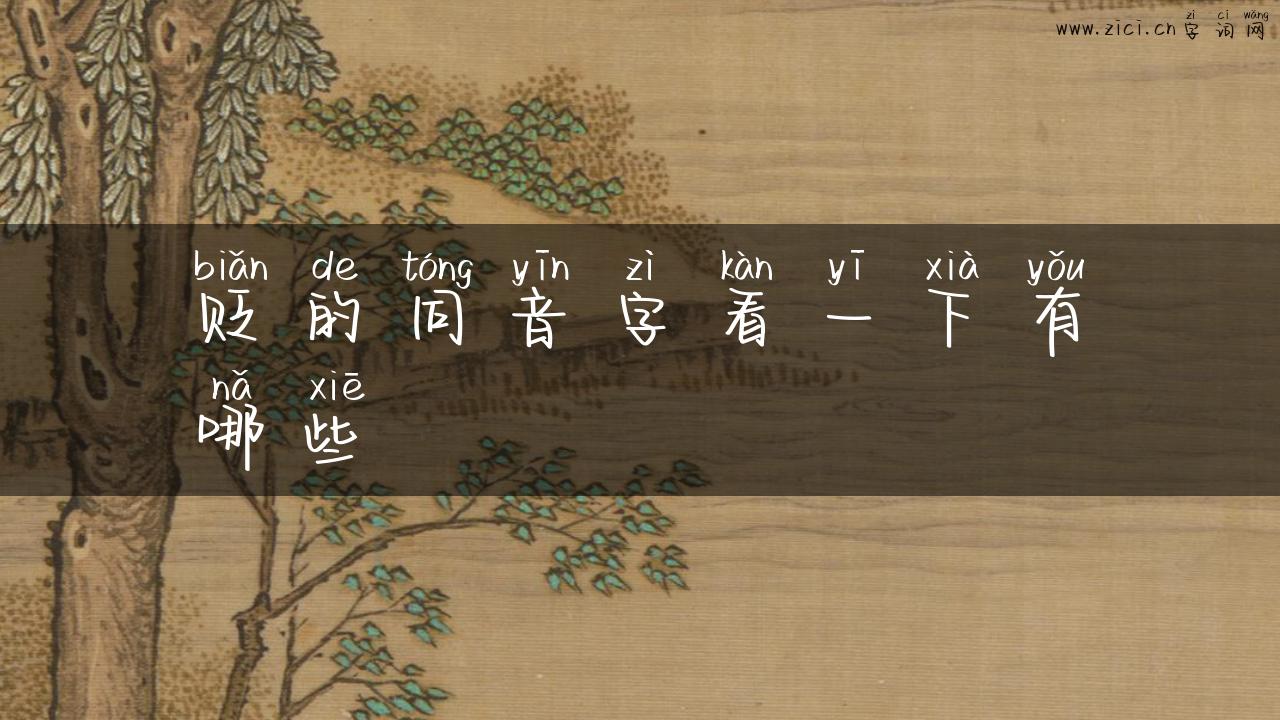 zì cí wǎng
www.zici.cn 字词网
biǎn de tóng yīn zì kàn yī xià yǒu
贬的同音字看一下有
nǎ xiē
哪些